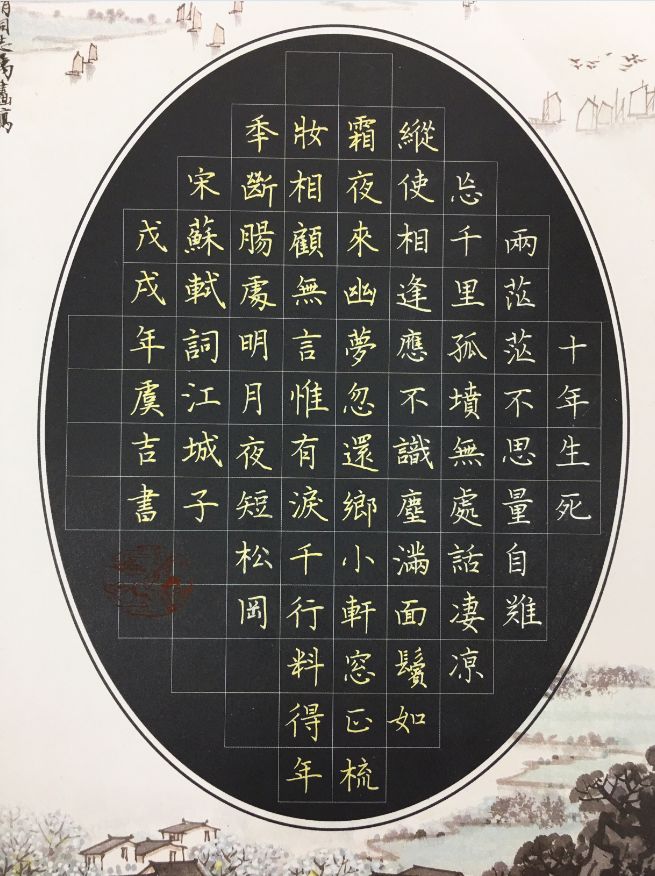 十年生死
兩茫茫不思量自難
忘千里孤墳無處話凄凉
縱使相逢應不識塵滿面鬢如
霜夜來幽夢忽還鄉小軒窓正梳
妝相顧無言惟有淚千行料得年
秊斷腸處明月夜短松岡
宋蘇軾詞江城子
戊戌年虞吉書